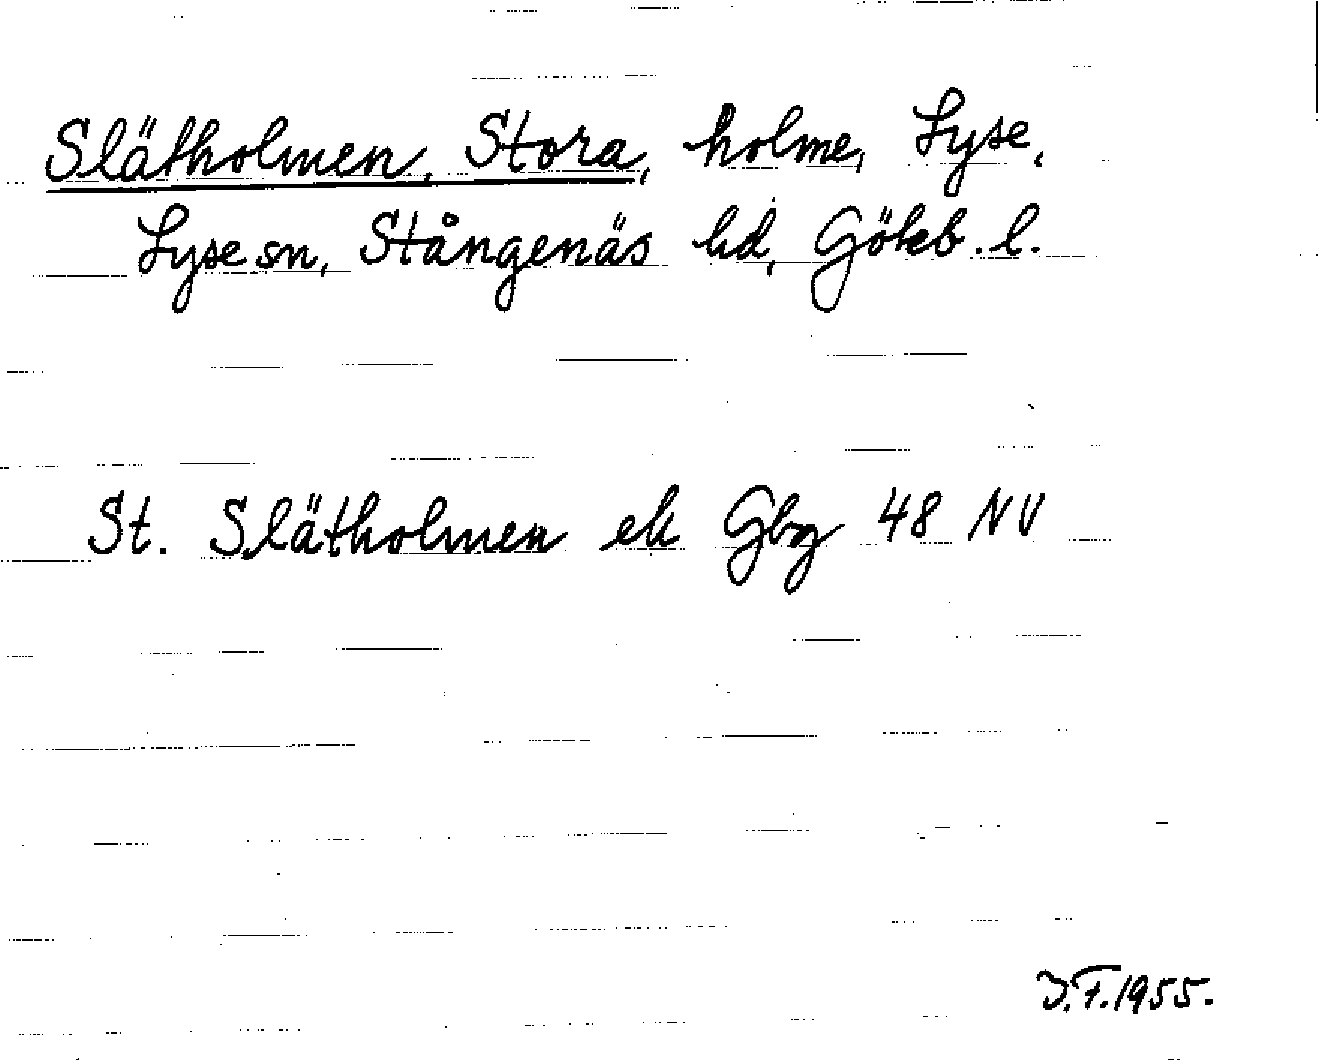 Slätholmen, Stora, holme, Lyse,
Lyse sn, Stångenäs hd, Göteb. l.
St. Slätholmen ek Gbg 48 NV
J.F. 1955.